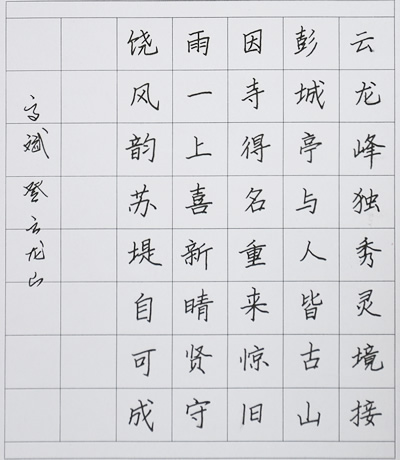 云龙峰独秀灵境接
彭城亭与人皆古山
因寺得名重来惊旧
雨一上喜新晴贤守
饶风韵苏堤自可成
高斌 登云龙山